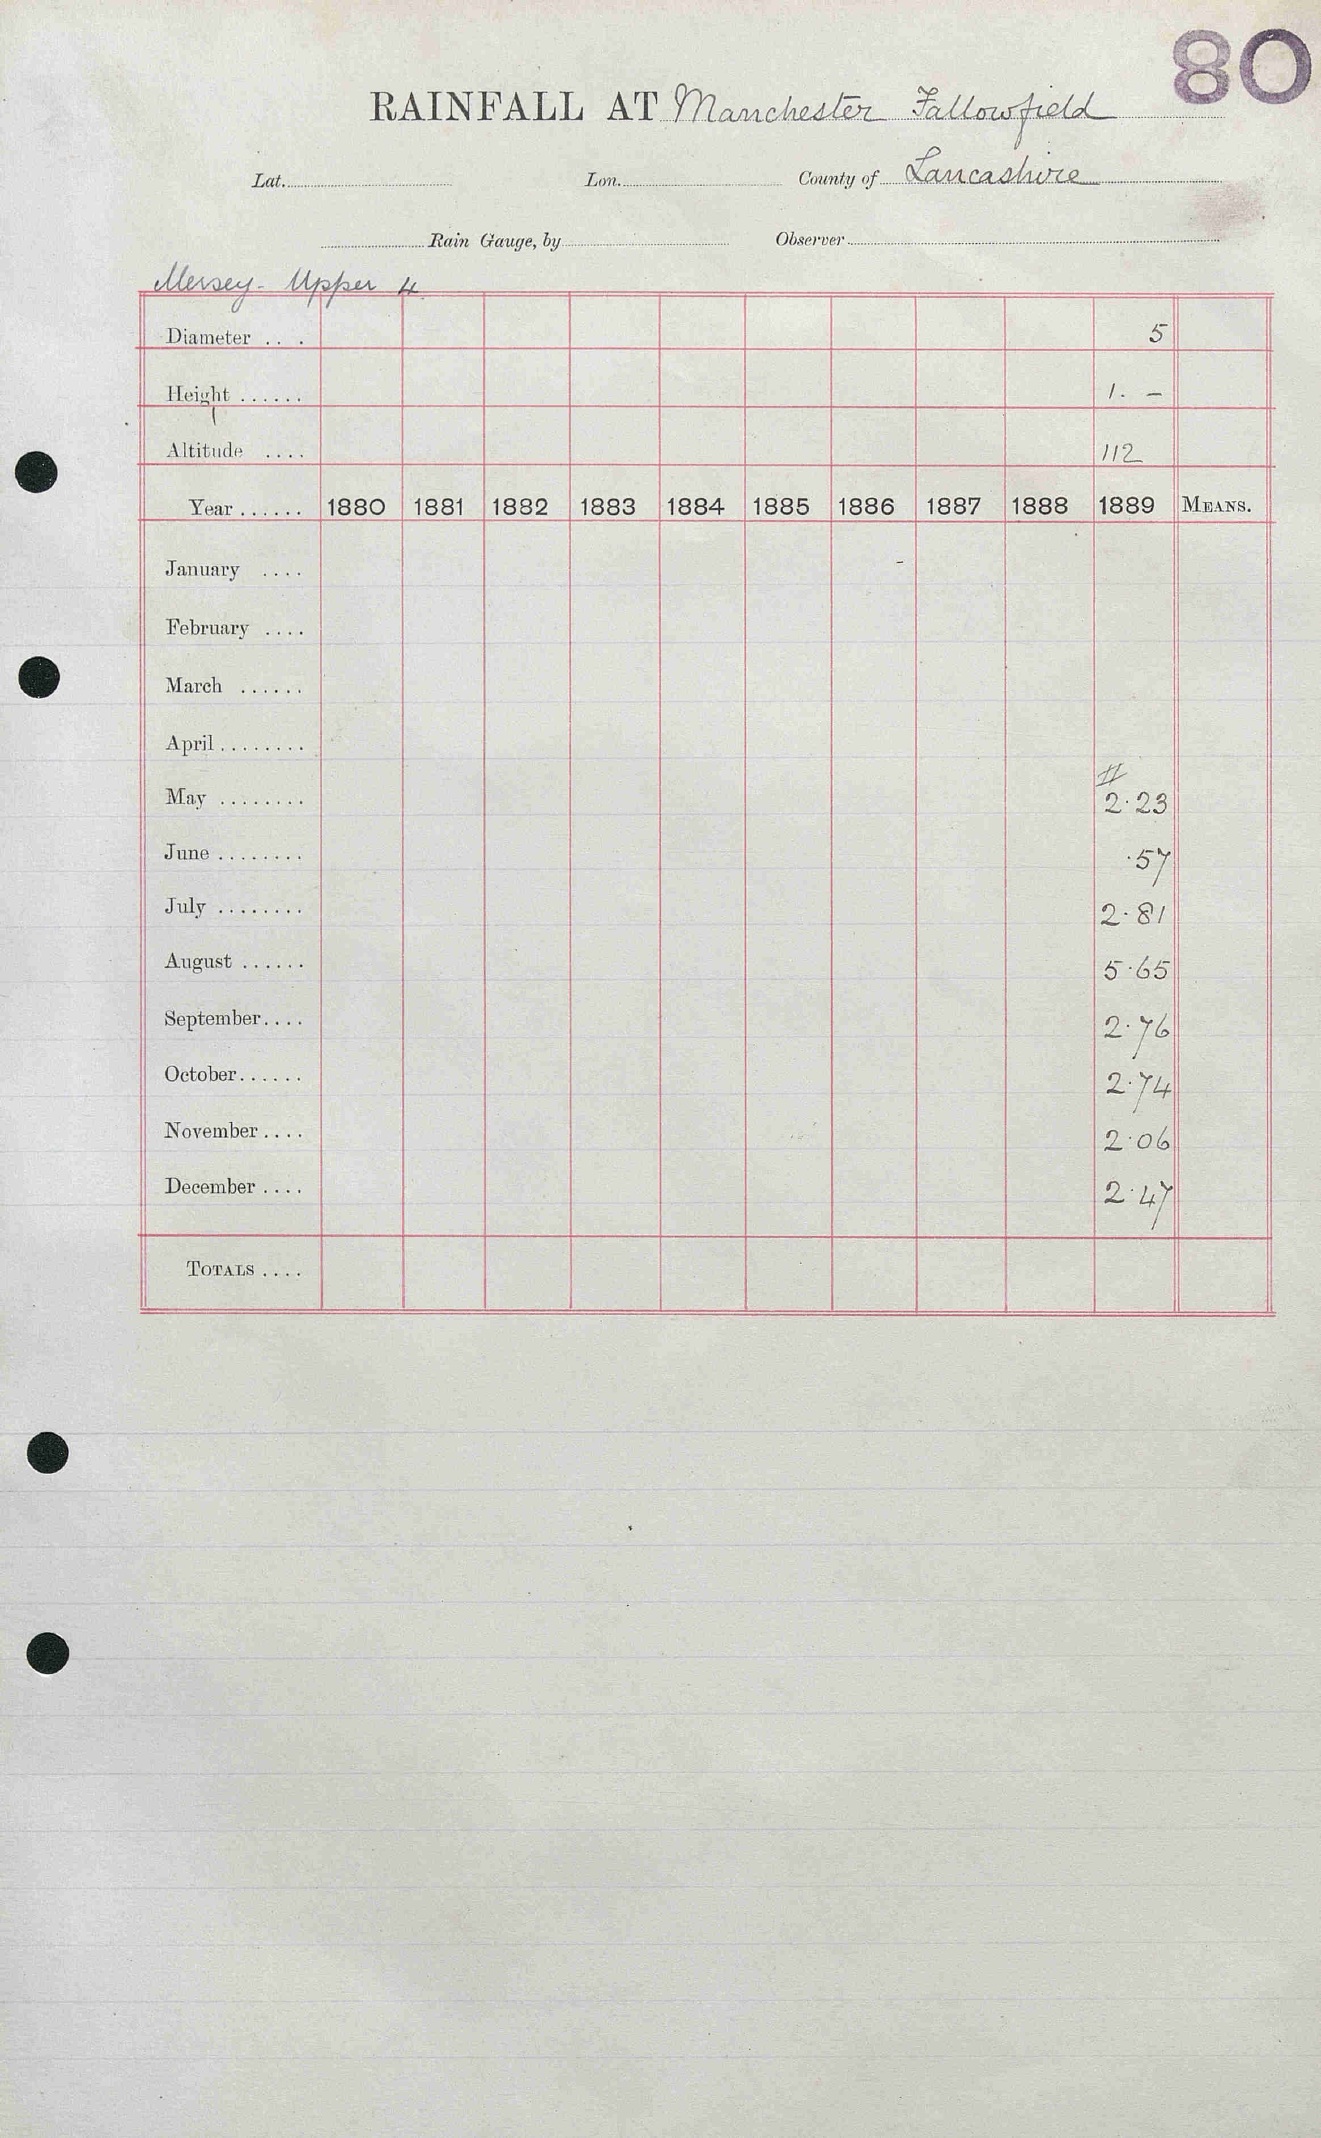 80
RAINFALL AT Manchester Fallowfield
Lat. Lon. County of Lancashire
Rain Gauge, by Observer
Mersey - Upper 4
Diameter .. . 5
Height ...... 1. –
Altitude .... 112
Year ...... 1880 1881 1882 1883 1884 1885 1886 1887 1888 1889 MEANS.
January ....
February ....
March ......
April ........
#
May ........ 2.23
June ........ .57
July ........ 2.81
August ...... 5.65
September.... 2.76
October...... 2.74
November .... 2.06
December .... 2.47
TOTALS ....